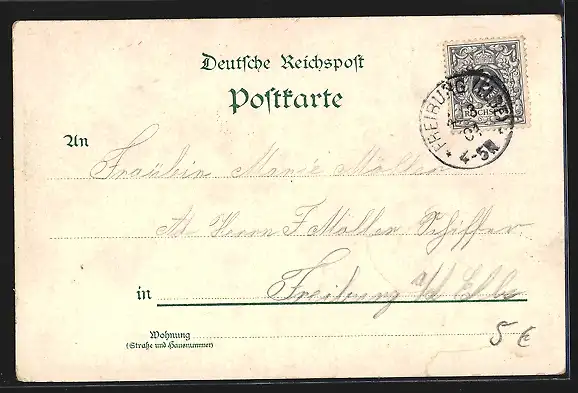 Deutsche Reichspost
Postkarte
REICHSP
FREIBURG (ELBE)
4-5N
An
Fräulein Marie Möller
Ad. Herrn F Möller Schiffer
in Freiburg a/d Elbe
Wohnung
(Straße und Hausnummer)
5 €